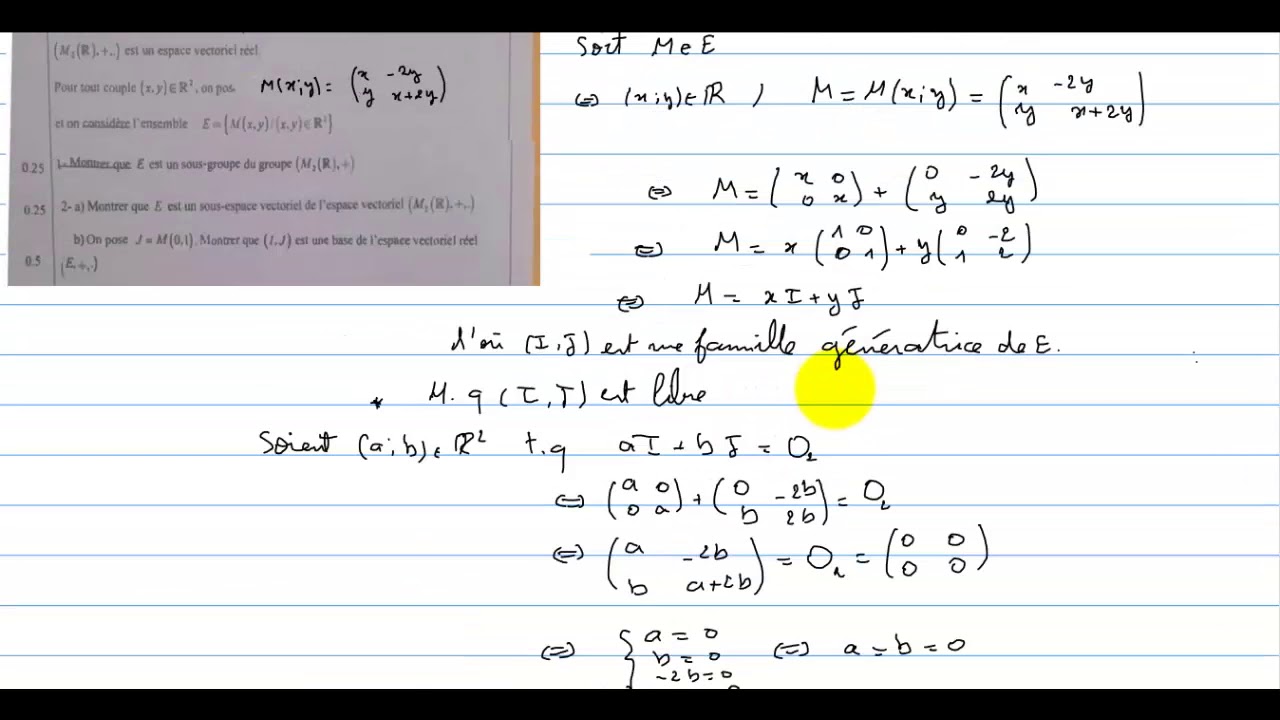 (M₂(ℝ),+,.) est un espace vectoriel réel
Pour tout couple (x,y)∈ℝ², on pos. M(x;y) = (x -2y / y x+2y)
et on considère l'ensemble E = {M(x,y)/(x,y)∈ℝ²}
0.25 1- Montrer que E est un sous-groupe du groupe (M₂(ℝ),+)
0.25 2- a) Montrer que E est un sous-espace vectoriel de l'espace vectoriel (M₂(ℝ),+,.)
b) On pose J = M(0,1). Montrer que (I,J) est une base de l'espace vectoriel réel
0.5 (E,+,.)
Soit M∈E
⇔ (x;y)∈ℝ / M = M(x;y) = (x -2y / y x+2y)
⇔ M = (x 0 / 0 x) + (0 -2y / y 2y)
⇔ M = x (1 0 / 0 1) + y (0 -2 / 1 2)
⇔ M = xI + yJ
d'où (I,J) est une famille génératrice de E.
* M.q (I,J) est libre
Soient (a;b)∈ℝ² t.q aI + bJ = O₂
⇔ (a 0 / 0 a) + (0 -2b / b 2b) = O₂
⇔ (a -2b / b a+2b) = O₂ = (0 0 / 0 0)
⇔ { a = 0 ⇔ a = b = 0
b = 0
-2b = 0